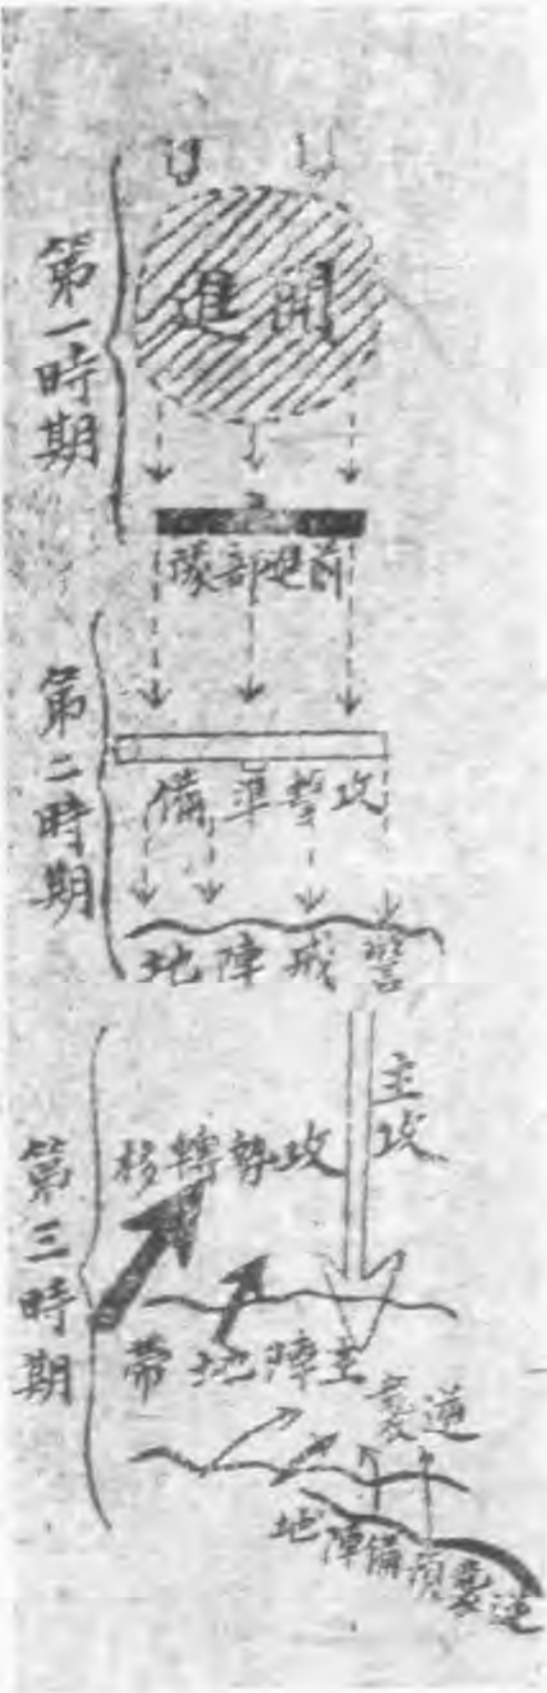 第一時期
開進
前進部隊
第二時期
攻擊準備
警戒陣地
第三時期
主攻
攻勢轉移
主陣地帶
逆襲
逆襲預備陣地